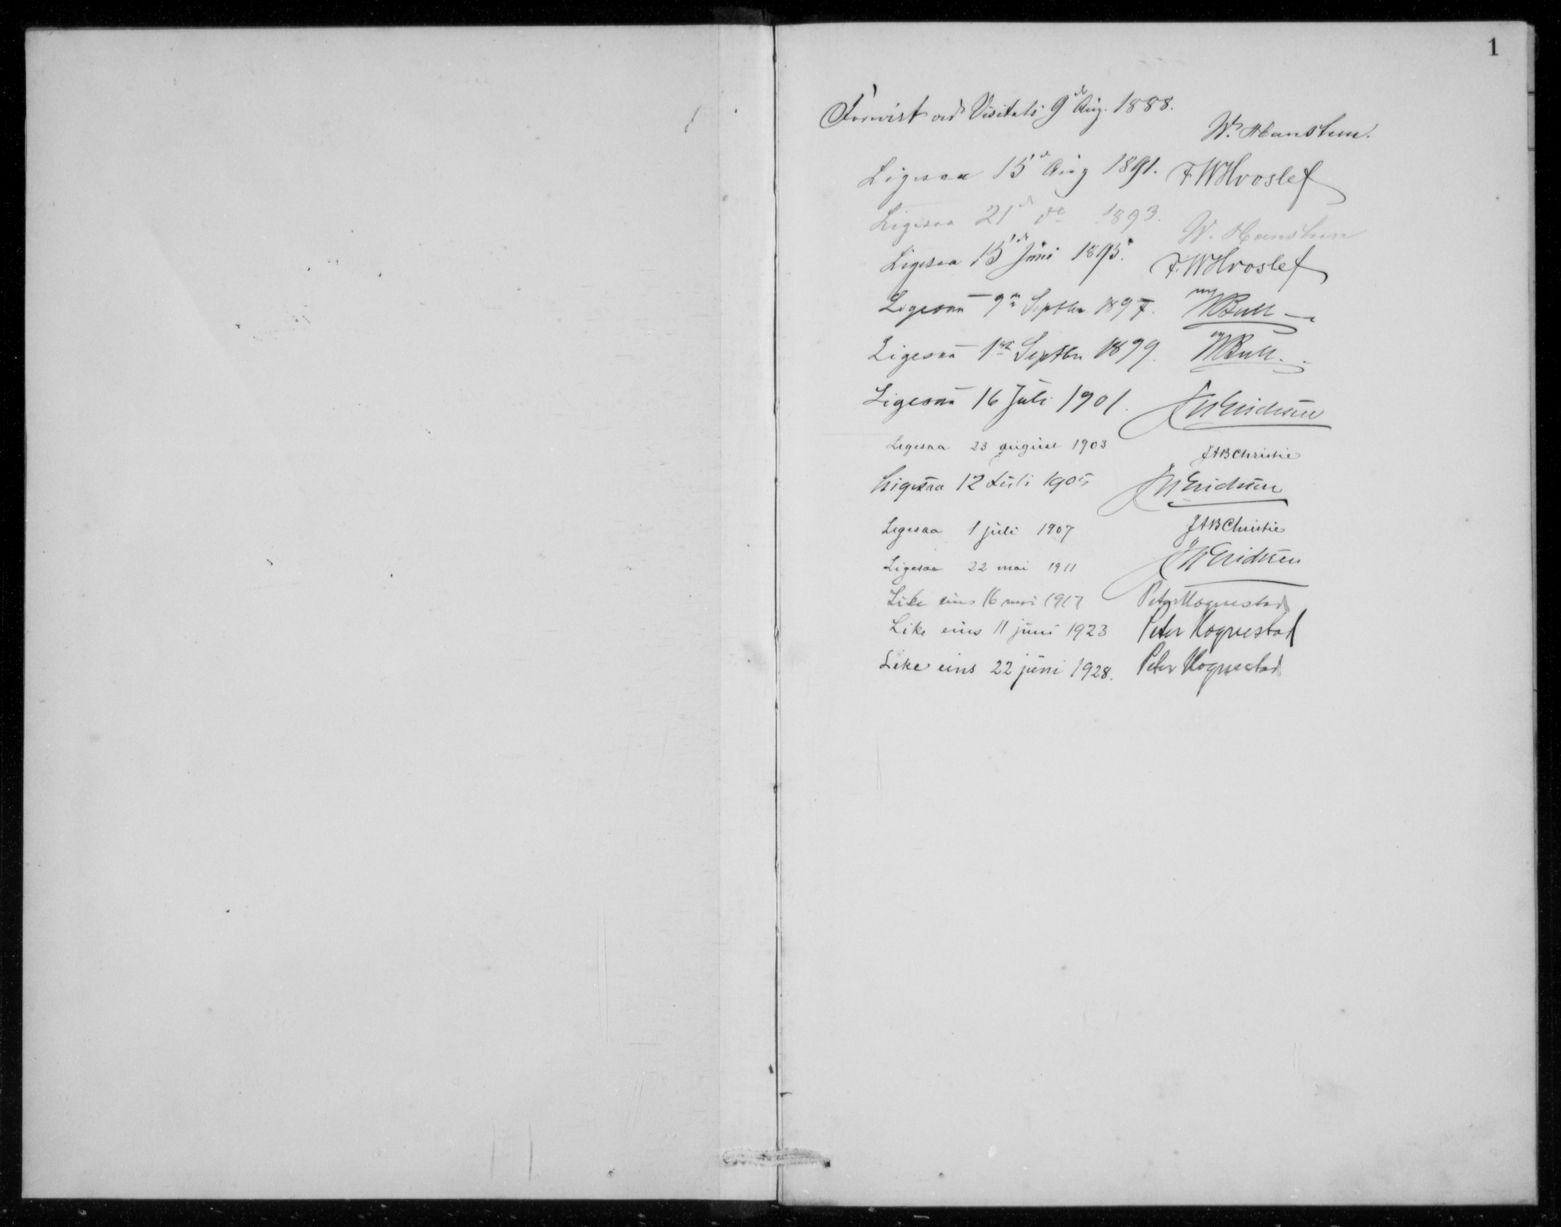 1
Forevist ved Visitats 9de Aug. 1888.
W. Hansteen.
Ligesaa 15de Aug 1891. F. W Hvoslef
Ligesaa 21de do 1893. W. Hansteen
Ligesaa 15de Juni 1895. F. W Hvoslef
Ligesaa 9de Septbr 1897. Bull
Ligesaa 1ste Septbr 1899. Bull.
Ligesaa 16 Juli 1901. Erichsen
Ligesaa 23 august 1903 JAB Christie
Ligesaa 12 Juli 1905 Erichsen
Ligesaa 1 juli 1907 JAB Christie
Ligesaa 22 mai 1911 Erichsen
Like eins 16 mai 1917 Peter Hognestad
Like eins 11 juni 1923 Peter Hognestad
Like eins 22 juni 1928. Peter Hognestad